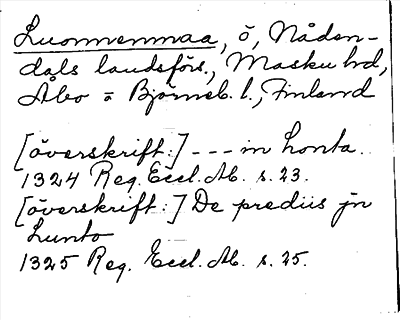 Luonnenmaa, ö, Nåden-
dals landsförs., Masku hd,
Åbo o Björneb. l., Finland
[överskrift:] --- in Lonta.
1324 Reg. Eccl. Ab. s. 23.
[överskrift:] De prediis jn
Lunto
1325 Reg. Eccl. Ab. s. 25.